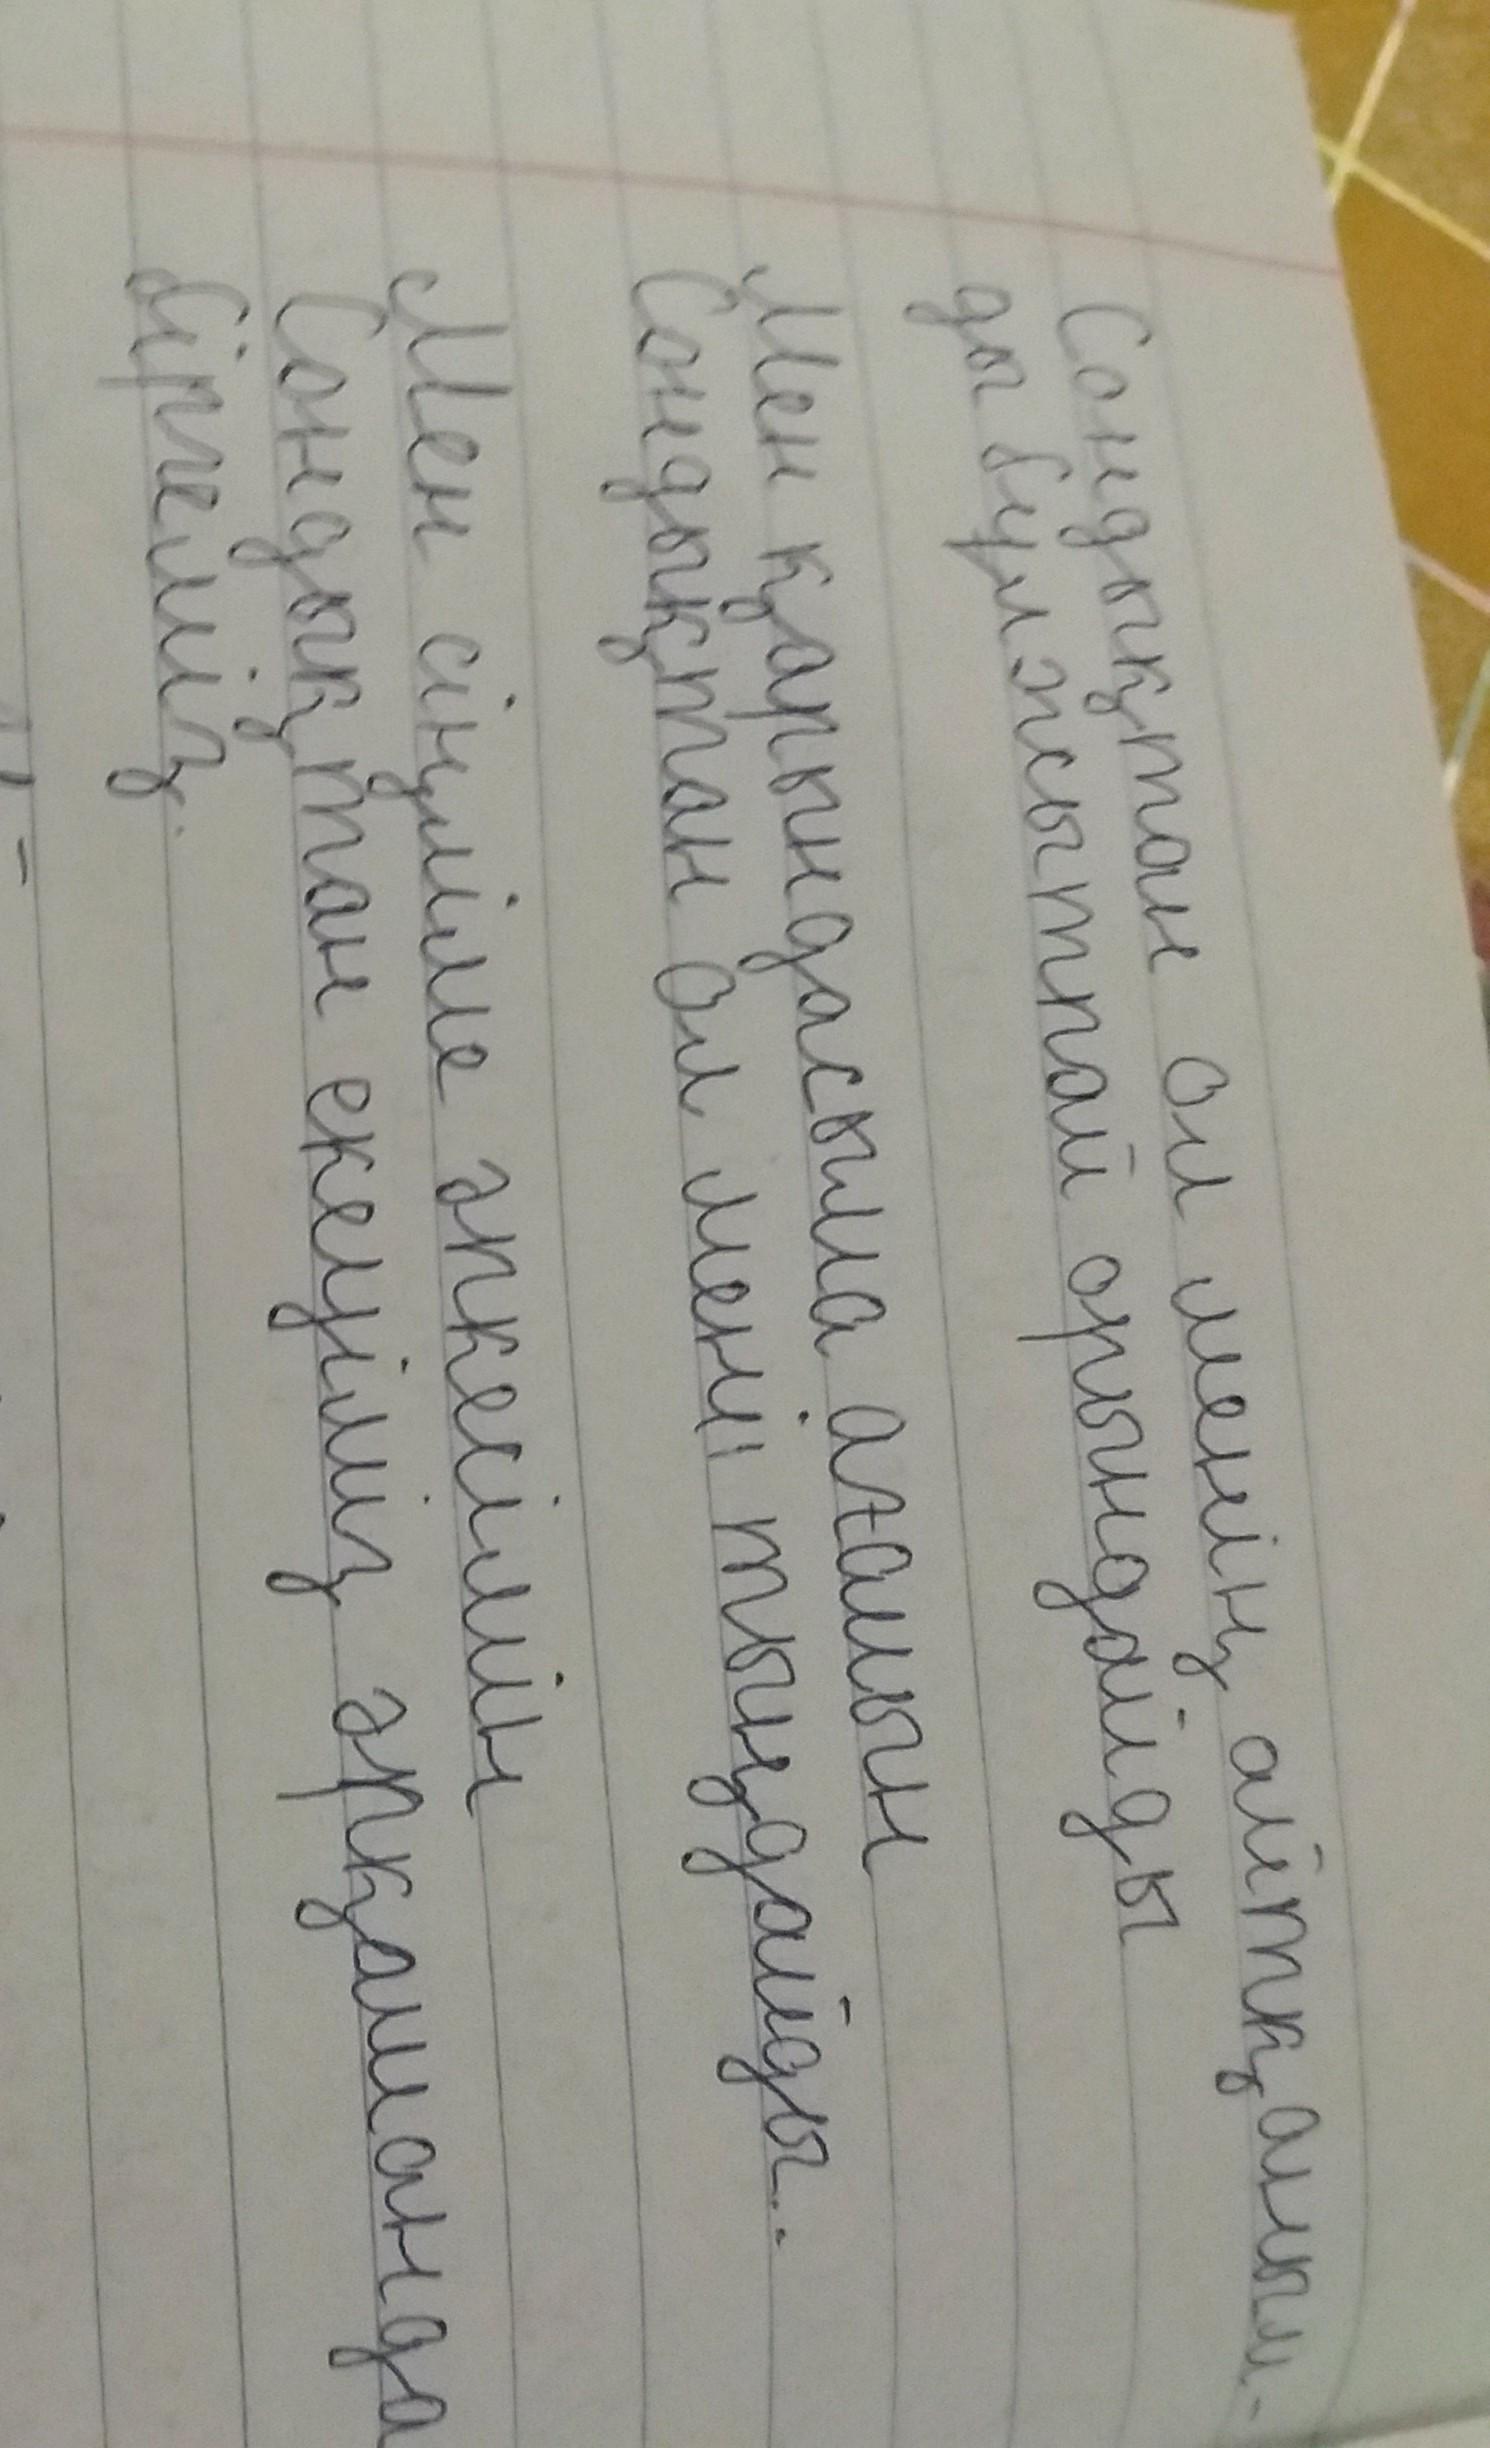 Сондықтан ол менің айтқаным-
ды бұлжытпай орындайды
Мен қарындасыма ағамын
Сондықтан ол мені тыңдайды..
Мен сіңліме әпкесімін
Сондықтан екеуіміз әрқашанда
біргеміз.